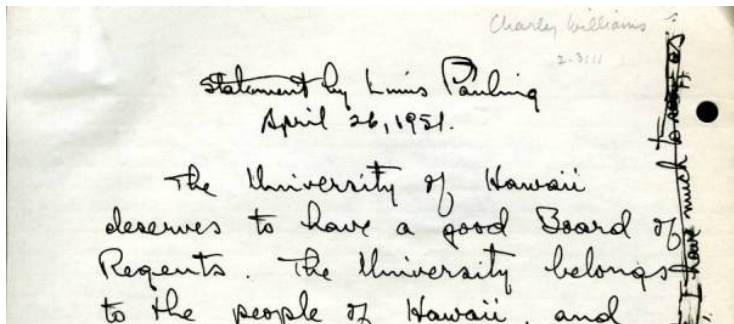 Charley Williams
2-3111
Statement by Linus Pauling
April 26, 1951.
The University of Hawaii
deserves to have a good Board of
Regents. The University belongs
to the people of Hawaii, and
I have much to